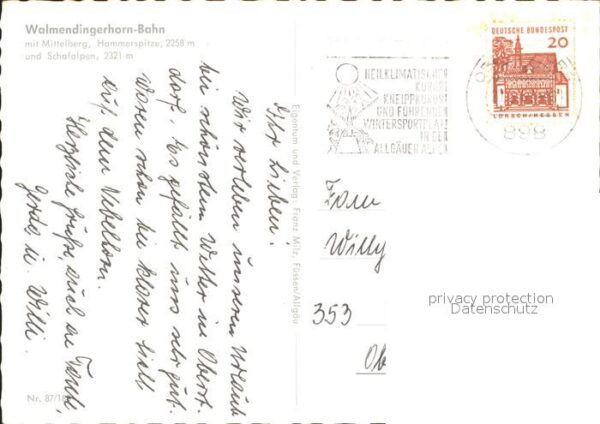 Walmendingerhorn-Bahn
mit Mittelberg, Hammerspitze, 2258 m
und Schafalpen, 2321 m
Ihr Lieben!
Wir verleben unseren Urlaub
bei schönstem Wetter in Oberst-
dorf. Es gefällt uns sehr gut.
Waren schon bei klarer Sicht
auf dem Nebelhorn.
Herzliche Grüße, auch an
Gerda u. Willi.
Nr. 87/16
Eigentum und Verlag: Franz Milz, Füssen/Allgäu
HEILKLIMATISCHER
KURORT
KNEIPPKURORT
UND FÜHRENDER
WINTERSPORTPLATZ
IN DEN
ALLGÄUER ALPEN
DEUTSCHE BUNDESPOST
20
LORSCH/HESSEN
898
Fam
Willy
353
privacy protection
Datenschutz